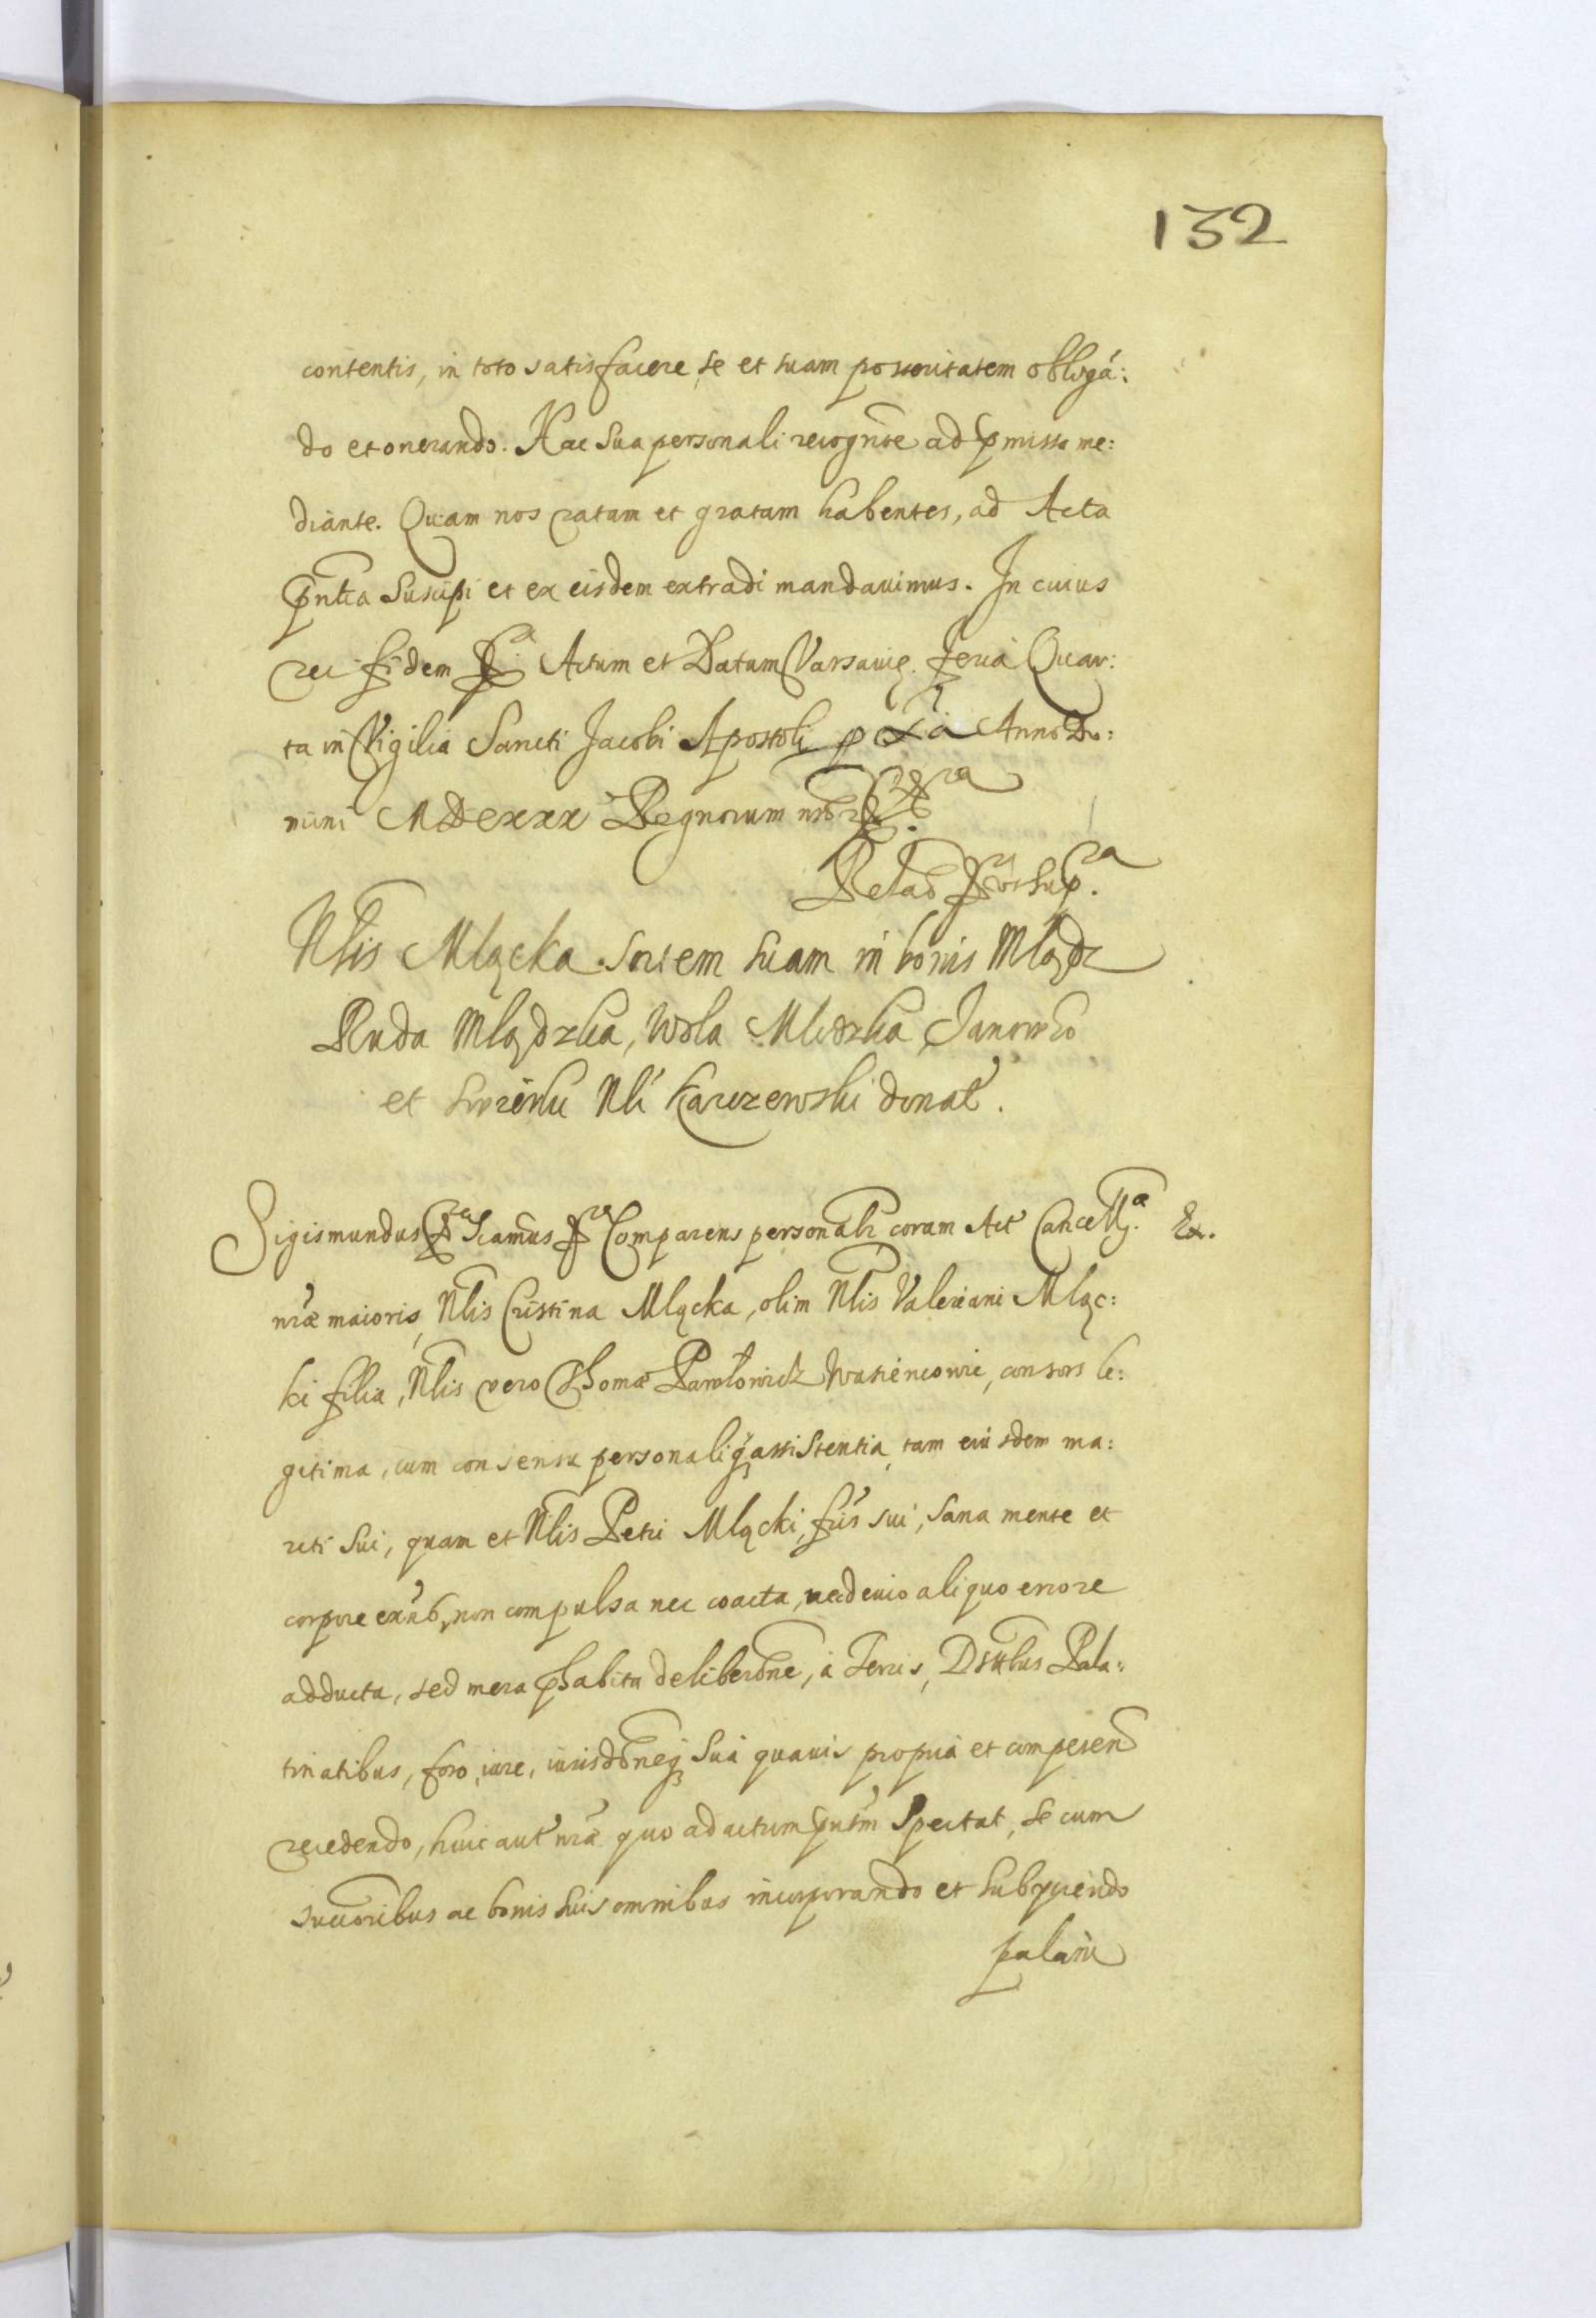 132
contentis, in toto satisfacere, se et suam posteritatem obligã:
do et onerando. Hac sua personali recognĩce ad p̃missa me:
diante. Quam nos ratam et gratam habentes, ad Acta
p̃ntia Suscipi et ex eisdem extradi mandavimus. In cuius
rei fidem Actum et Datum Varsaviæ. Feria Quar:
ta in Vigilia Sancti Jacobi Apostoli Anno Do:
mini MDCXXX Regnorum nr̃or
Relao
Nlis Mlącka sortem suam in bonis Mlądz
Ruda Mlądzka, Wola Mlądzka Janowko
et Nli Karczewski donat.
Sigismundus Comparens personalr coram Act Cancell. Ex.
nr̃æ maioris, Nlis Cristina Mlącka, olim Nlis Valeriani Mląc:
ki filia, Nlis vero Thomæ Pawłowicz consors le:
gitima, cum consensu personaliq; assistentia tam eiusdem ma:
riti sui, quam et Nlis Petri Mlącki, frĩs sui, sana mente et
corpore exñs, non compulsa nec coacta, nec devio aliquo errore
adducta, sed mera p̃habita deliberõne, à Terris, Dstlbus Pala:
tinatibus, foro, iure, iurisdõneq; Sua quavis propria et competen
recedendo, huic aut nr̃æ quo ad actum p̃ntm Spectat, se cum
succoribus ac bonis suis omnibus incorporando et subyciendo
palam